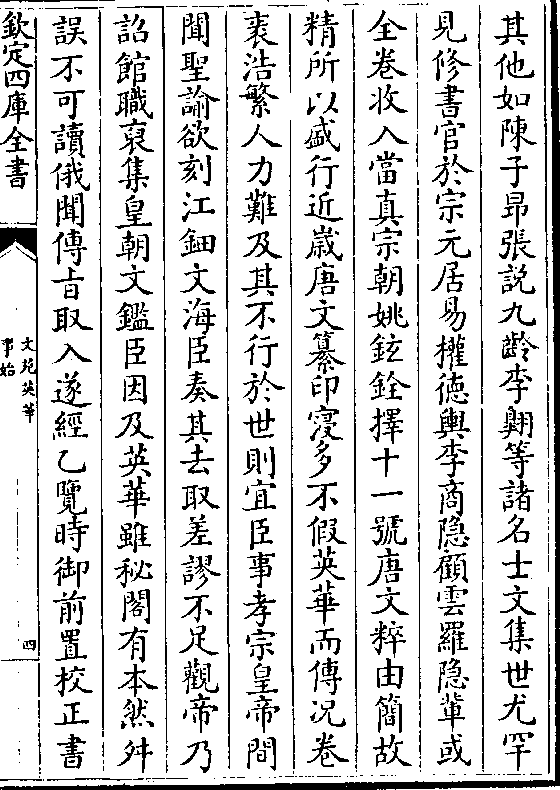 其他如陳子昂張説九齡李翺等諸名士文集世尤罕
見修書官於宗元居易權徳輿李商隠顧雲羅隠輩或
全卷收入當真宗朝姚鉉銓擇十一號唐文粹由簡故
精所以盛行近嵗唐文纂印寖多不假英華而傳况卷
袠浩繁人力難及其不行於世則宜臣事孝宗皇帝間
聞聖諭欲刻江鈿文海臣奏其去取差謬不足觀帝乃
詔館職裒集皇朝文鑑臣因及英華雖秘閣有本然舛
誤不可讀俄聞傳㫖取入遂經乙覽時御前置校正書
欽定四庫全書
文苑英華
事始
四